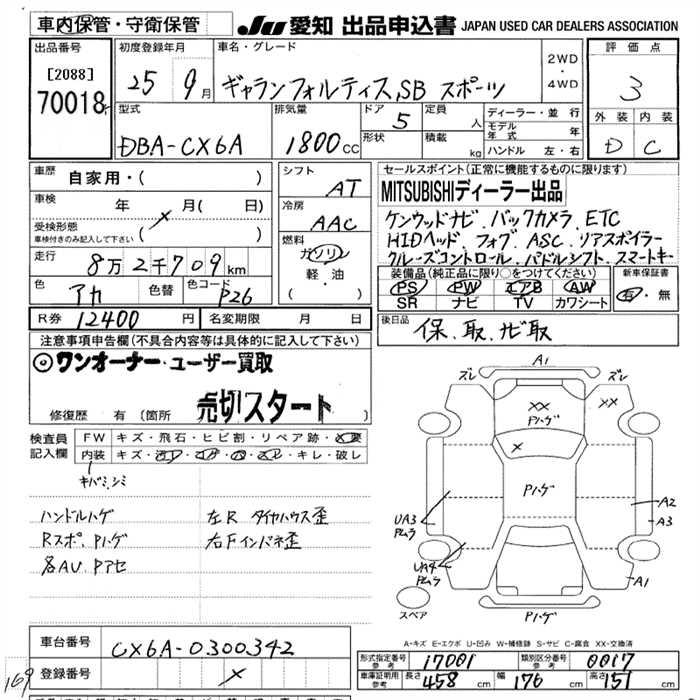 車内保管・守衛保管
JU 愛知 出品申込書 JAPAN USED CAR DEALERS ASSOCIATION
出品番号
[2088]
70018
初度登録年月
25 9月
車名・グレード
ギャランフォルティスSB スポーツ
2WD
・
4WD
評価点
3
外装 内装
D C
型式
DBA-CX6A
排気量
1800cc
ドア 5
形状
定員 人
積載 kg
ディーラー・並行
モデル年式 年
ハンドル 左・右
車歴
自家用・( )
車検 年 月( 日)
受検形態
車検付きのみ記入して下さい ( )
走行 8万2千709km
色 アカ 色替 色コード P26
R券 12400円 名変期限 月 日
シフト
AT
冷房
AAC
燃料
ガソリン
軽・油
( )
セールスポイント(正常に機能するものに限ります)
MITSUBISHIディーラー出品
ケンウッドナビ.バックカメラ.ETC
HIDヘッド.フォグ.ASC.リアスポイラー
クルーズコントロール.パドルシフト.スマートキー
装備品(純正品に限り○をつけてください)
PS PW エアB AW
SR ナビ TV カワシート
新車保証書
有・無
後日品
保.取.ナビ取
注意事項申告欄(不具合内容等は具体的に記入して下さい)
◎ワンオーナー・ユーザー買取
売切スタート
修復歴 有(箇所
検査員
記入欄
FW キズ・飛石・ヒビ割・リペア跡・×要
内装 キズ・汚レ・コゲ・穴・スレ・キレ・破レ
キバミ.シミ
ハンドルハゲ 左R タイヤハウス歪
Rスポ.Pハゲ 右Fインドネ歪
各AU.Pアセ
A1
ズレ ズレ
XX XX
Pハゲ
×
Pハゲ
UA3
Pムラ
UA4
Pムラ
A2
A3
A1
スペア
Pハゲ
A-キズ E-エクボ U-凹み W-補修跡 S-サビ C-腐食 XX-交換済
車台番号 CX6A-0300342
登録番号 ×
169
形式指定番号
参考 17001
類別区分番号
参考 0017
車庫証明用
参考 長さ 458cm 幅 176cm 高さ 151cm